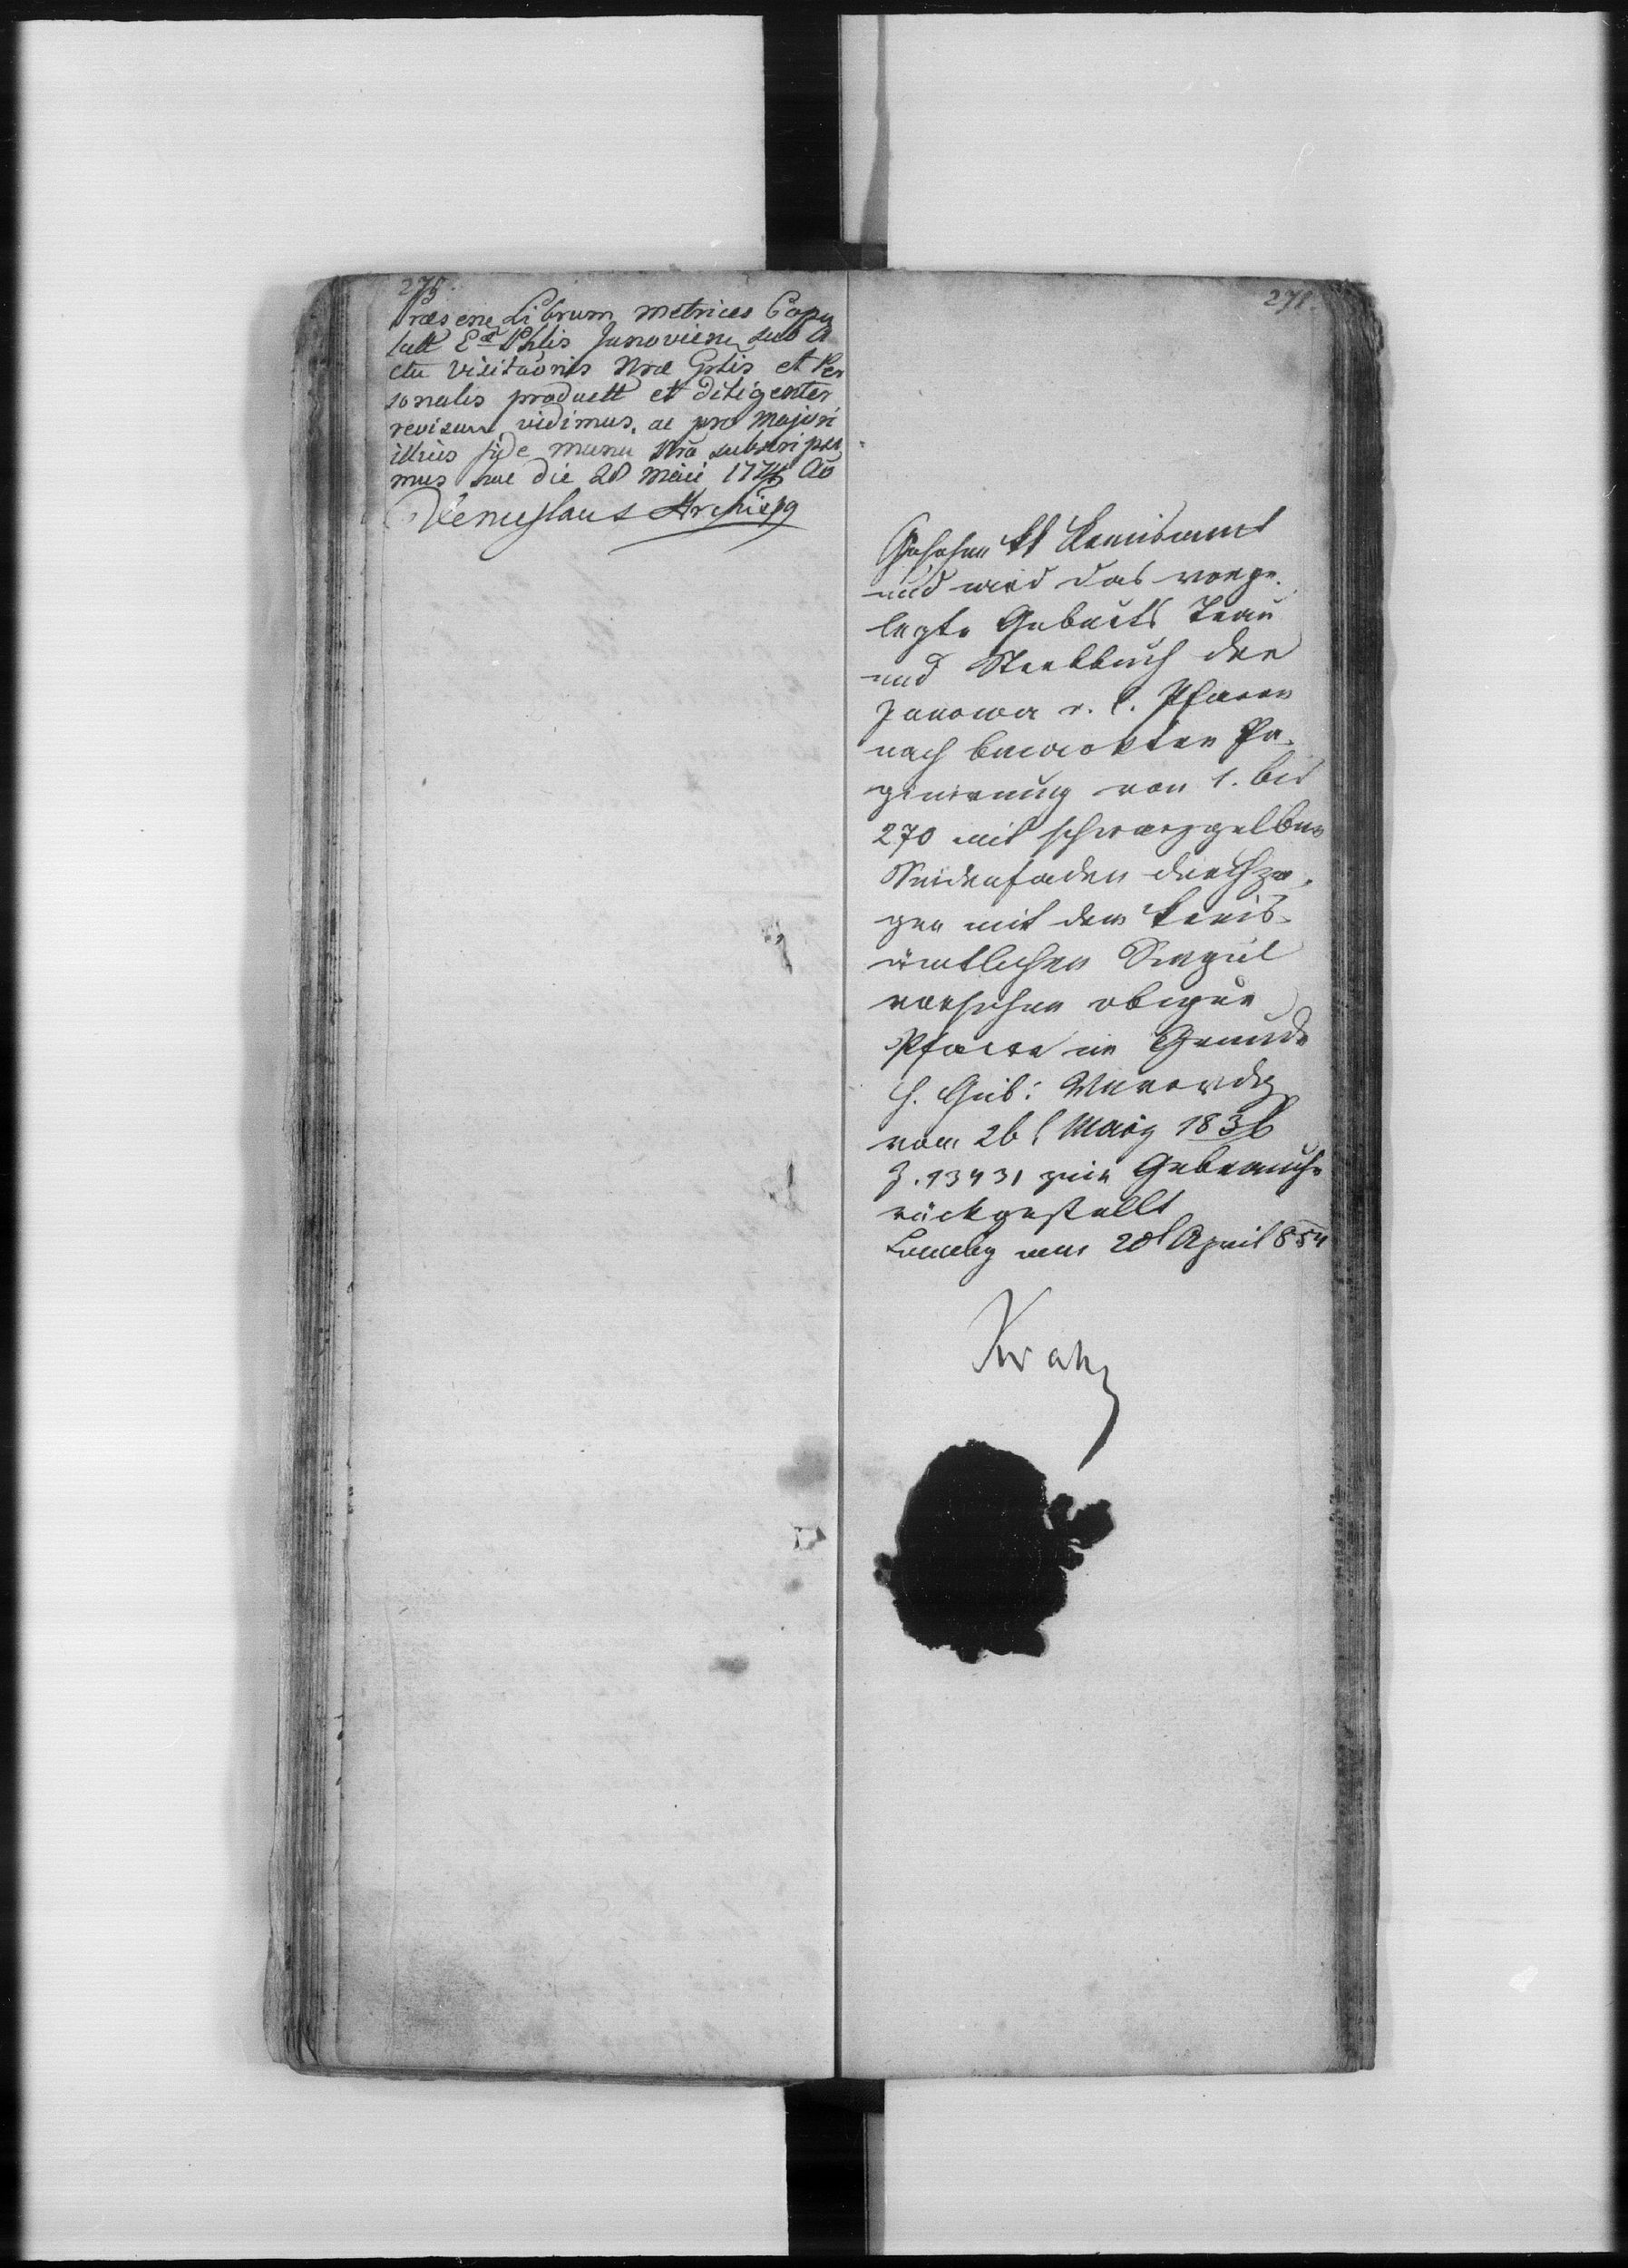 275.
Præsene Librum Metrices Copu
latt Eæ Phlis Janoviens sub a
ctu Visitaonis Nræ Gnlis et Per
sonalis produett et diligenter
revisum vidimus, ac pro majori
illius fide manu Nra subscripsi
mus hac die 28 Maii 1774 Ao
Venceslaus Archiepp
271.
Gesehen kk Kreisamt
und wird das vorge-
legte Geburts Trau
und Sterbbuch der
Janower r. l. Pfarre
nach bewirkter Pa-
ginirung von 1. bis
270 mit schwarzgelben
Seidenfaden durchzo-
gen mit dem kreis-
ämtlichen Siegel
versehen obiger
Pfarre im Grunde
h. Gub: Verordg
vom 26t März 1836
Z. 13431 zum Gebrauche
rückgestellt
Lemberg am 28t April 854